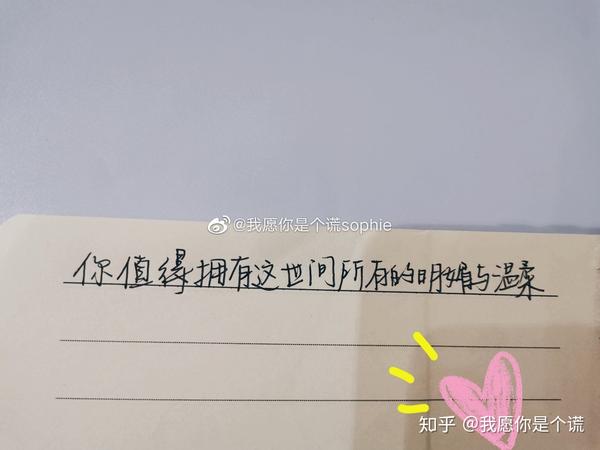 @我愿你是个谎sophie
你值得拥有这世间所有的明媚与温柔
知乎 @我愿你是个谎